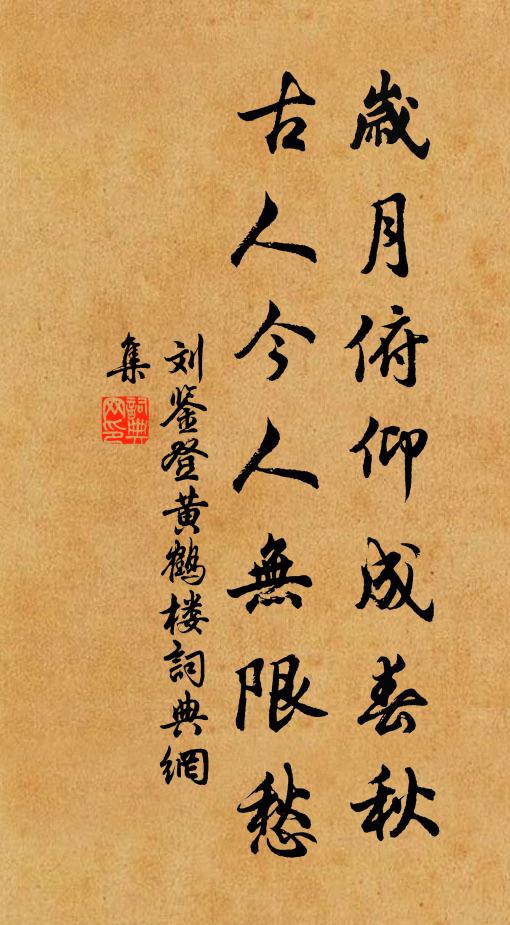 歲月俯仰成春秋
古人今人無限愁
刘鉴登黄鶴楼詞典網
集
詞典网印